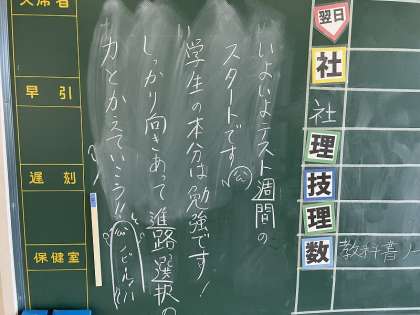 翌日
社
社
理
技
理
数 教科書ノー
いよいよテスト週間の
スタートです
学生の本分は勉強です！
しっかり向きあって進路選択の
力とかえていこう!!
欠席者
早引
遅刻
保健室